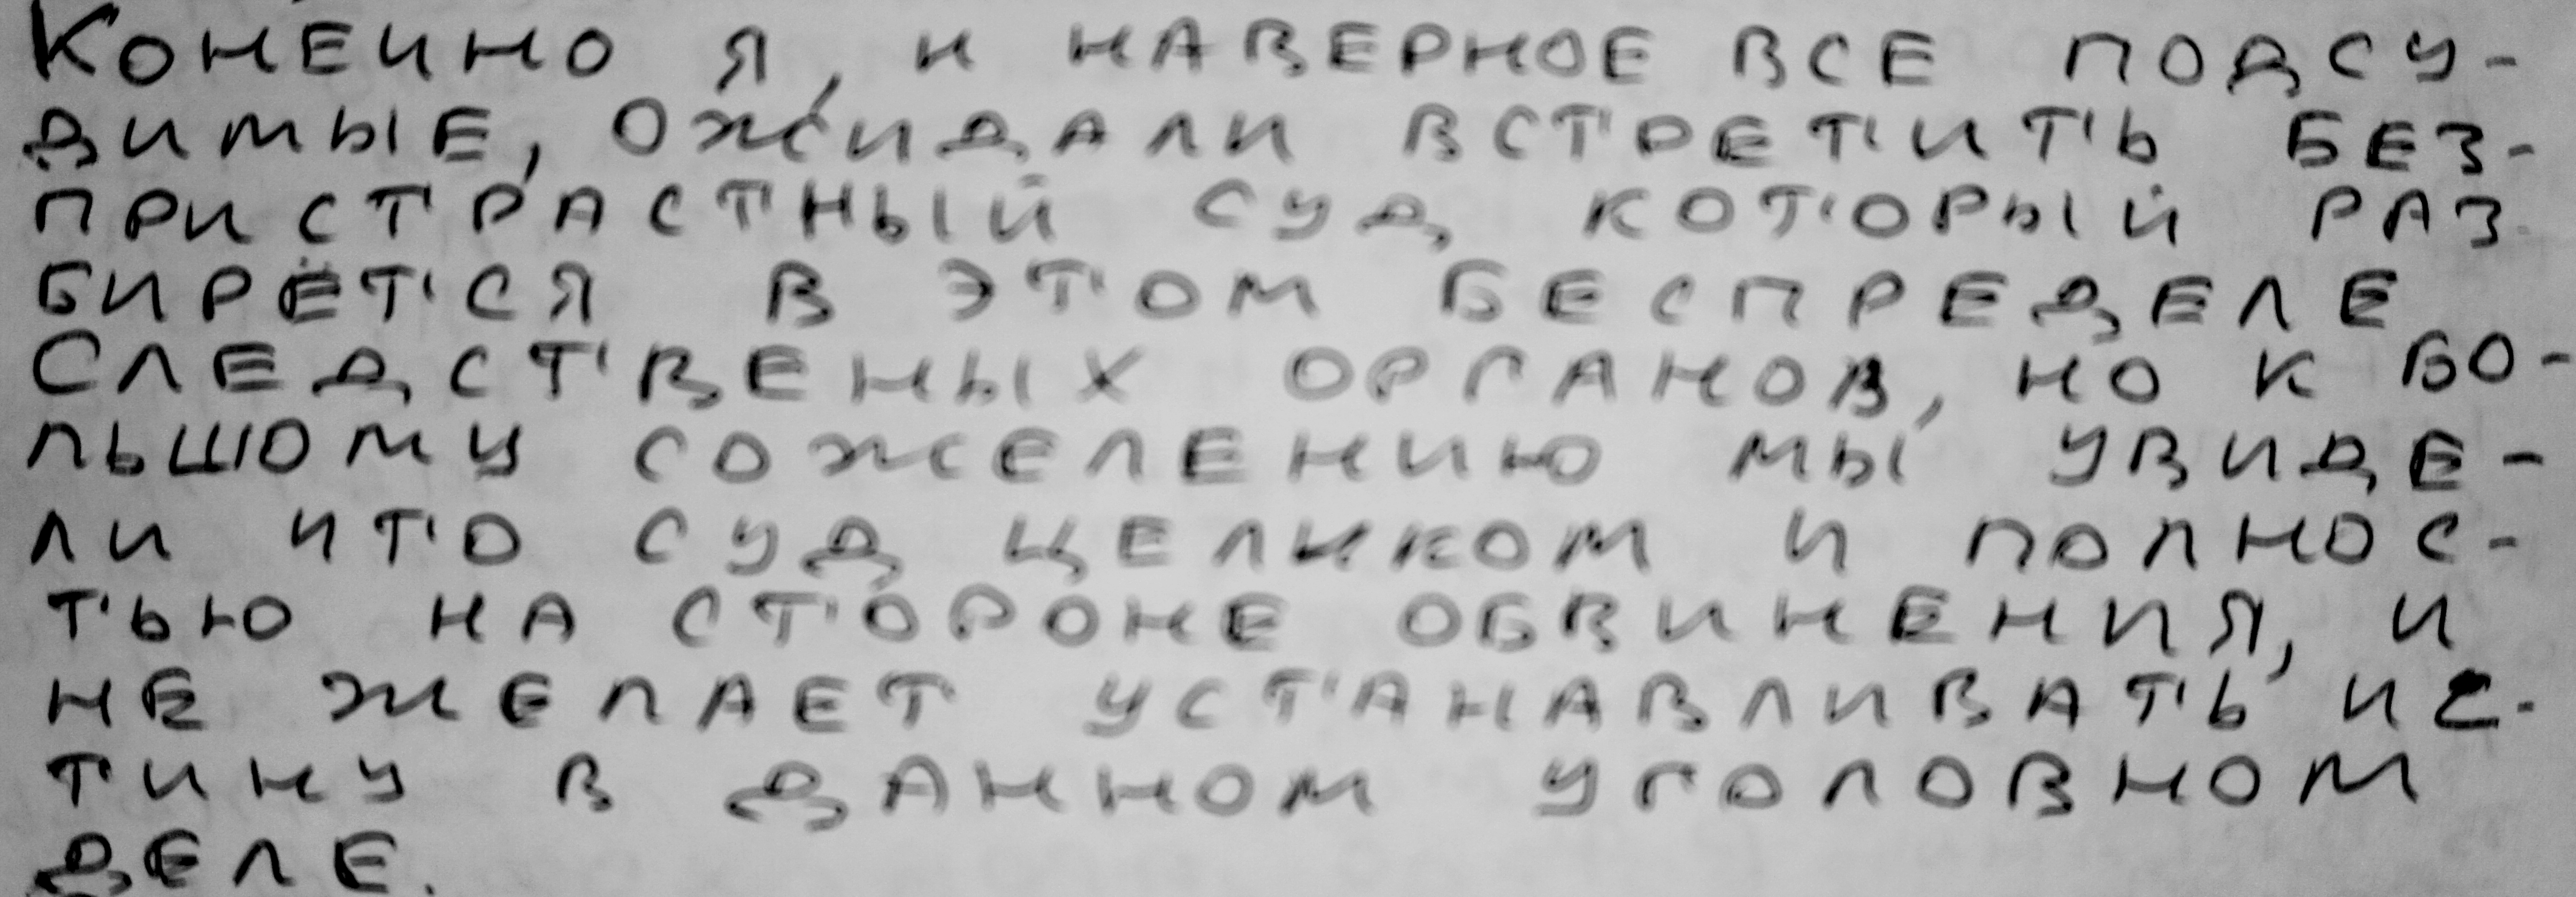 КОНЕЧНО Я, И НАВЕРНОЕ ВСЕ ПОДСУ-
ДИМЫЕ, ОЖИДАЛИ ВСТРЕТИТЬ БЕЗ-
ПРИСТРАСТНЫЙ СУД КОТОРЫЙ РАЗ-
БИРЁТСЯ В ЭТОМ БЕСПРЕДЕЛЕ
СЛЕДСТВЕНЫХ ОРГАНОВ, НО К БО-
ЛЬШОМУ СОЖЕЛЕНИЮ МЫ УВИДЕ-
ЛИ ЧТО СУД ЦЕЛИКОМ И ПОЛНОС-
ТЬЮ НА СТОРОНЕ ОБВИНЕНИЯ, И
НЕ ЖЕЛАЕТ УСТАНАВЛИВАТЬ ИС-
ТИНУ В ДАННОМ УГОЛОВНОМ
ДЕЛЕ.